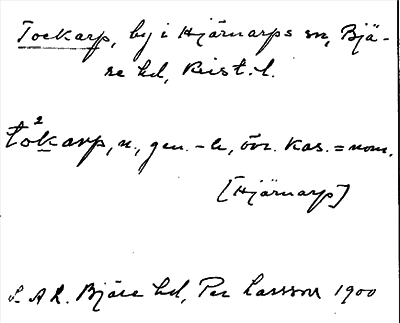 Tockarp, by i Hjärnarps sn, Bjä-
re hd, Krist. l.
to²karp, n., gen. -s, övr. kas. = nom.
[Hjärnarp]
L. A. L. Bjäre hd, Per Larsson 1900